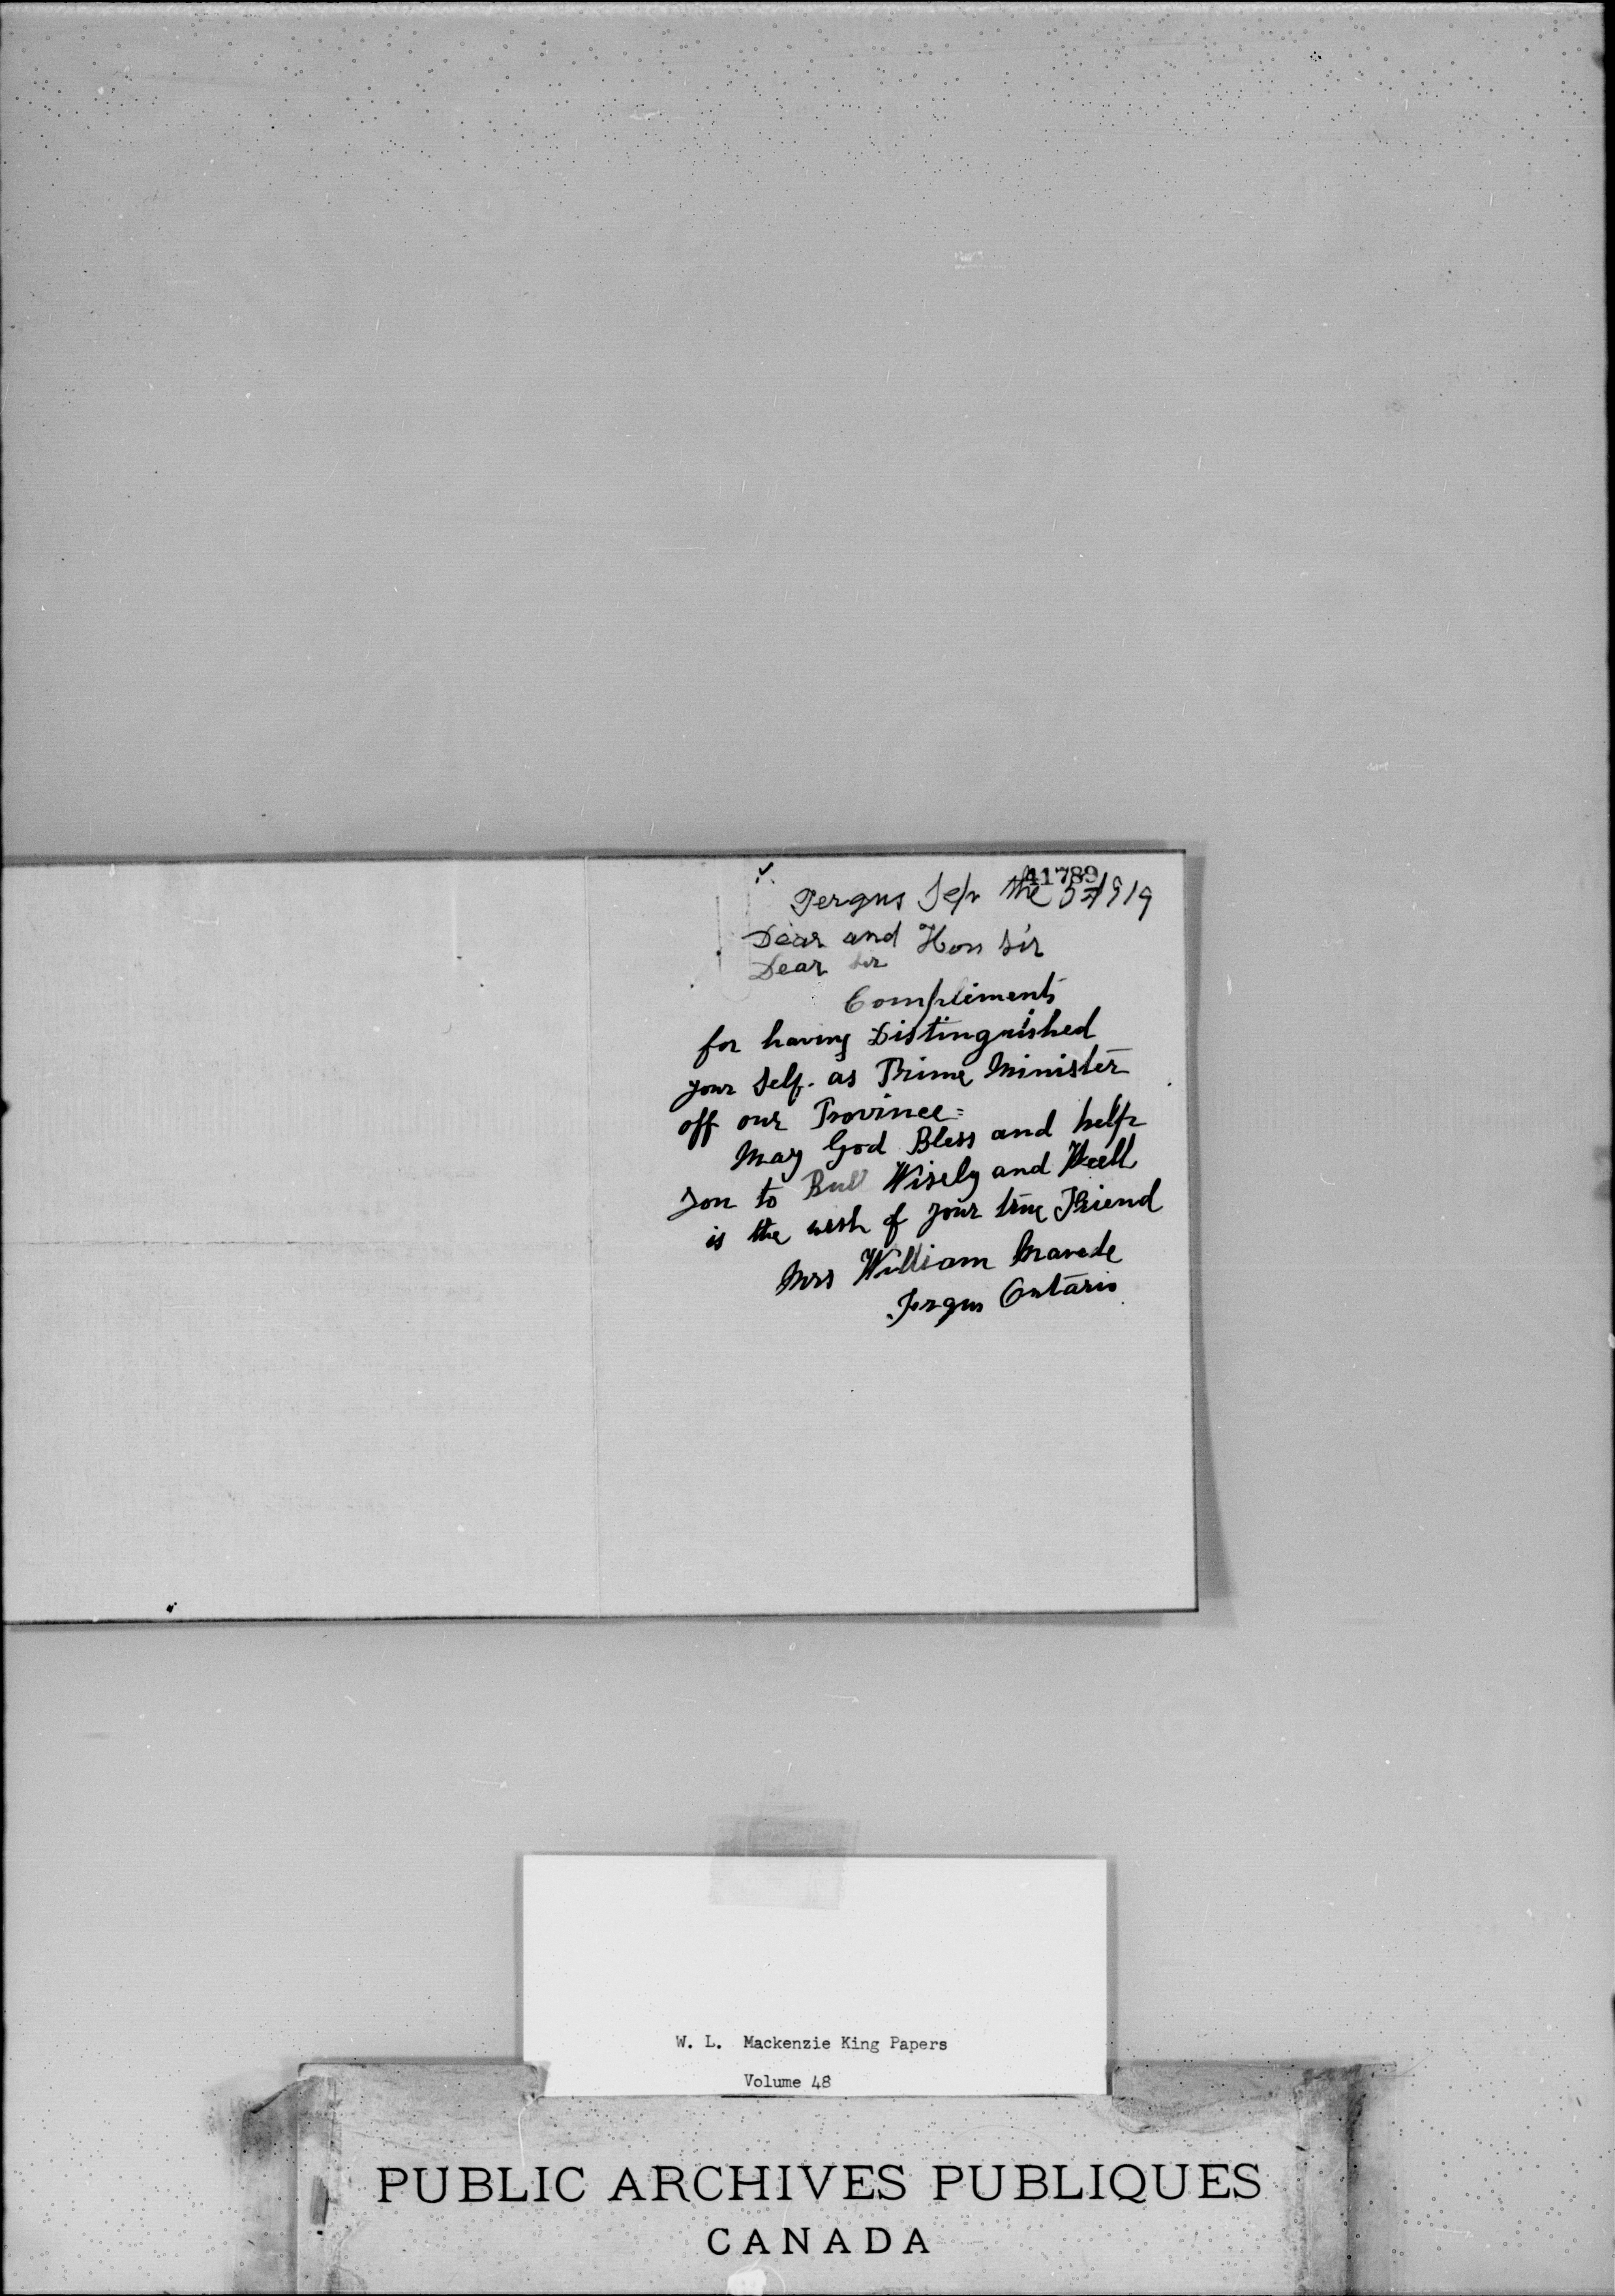 41789
Fergus Sep the 5th 1919
Dear and Hon Sir
Dear Sir
Compliments
for having Distinguished
your Self. as Prime Minister
off our Province=
May God Bless and help
you to Rule Wisely and Well
is the wish of your true Friend
Mrs William
Fergus Ontario
W. L. Mackenzie King Papers
Volume 48
PUBLIC ARCHIVES PUBLIQUES
CANADA